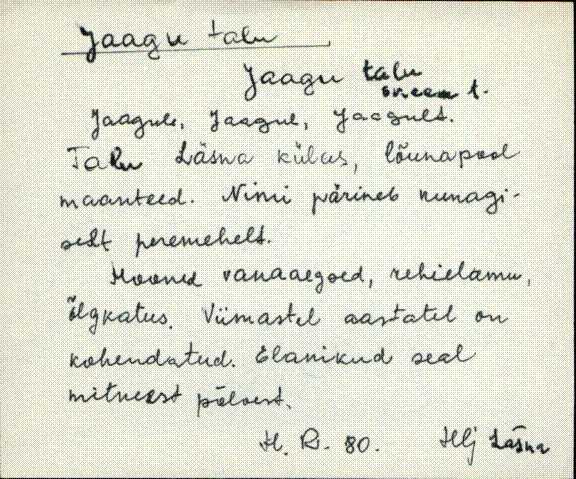 Jaagu talu
Jaagu talu
Jaagule, Jaagul, Jaagult.
Talu Läsna külas, lõunapool
maanteed. Nimi pärineb kunagi-
selt peremehelt.
Hooned vanaaegsed, rehielamu,
õlgkatus. Viimastel aastatel on
kohendatud. Elanikud seal
mitmest põlvest.
H. R. 80. Hlj Läsna